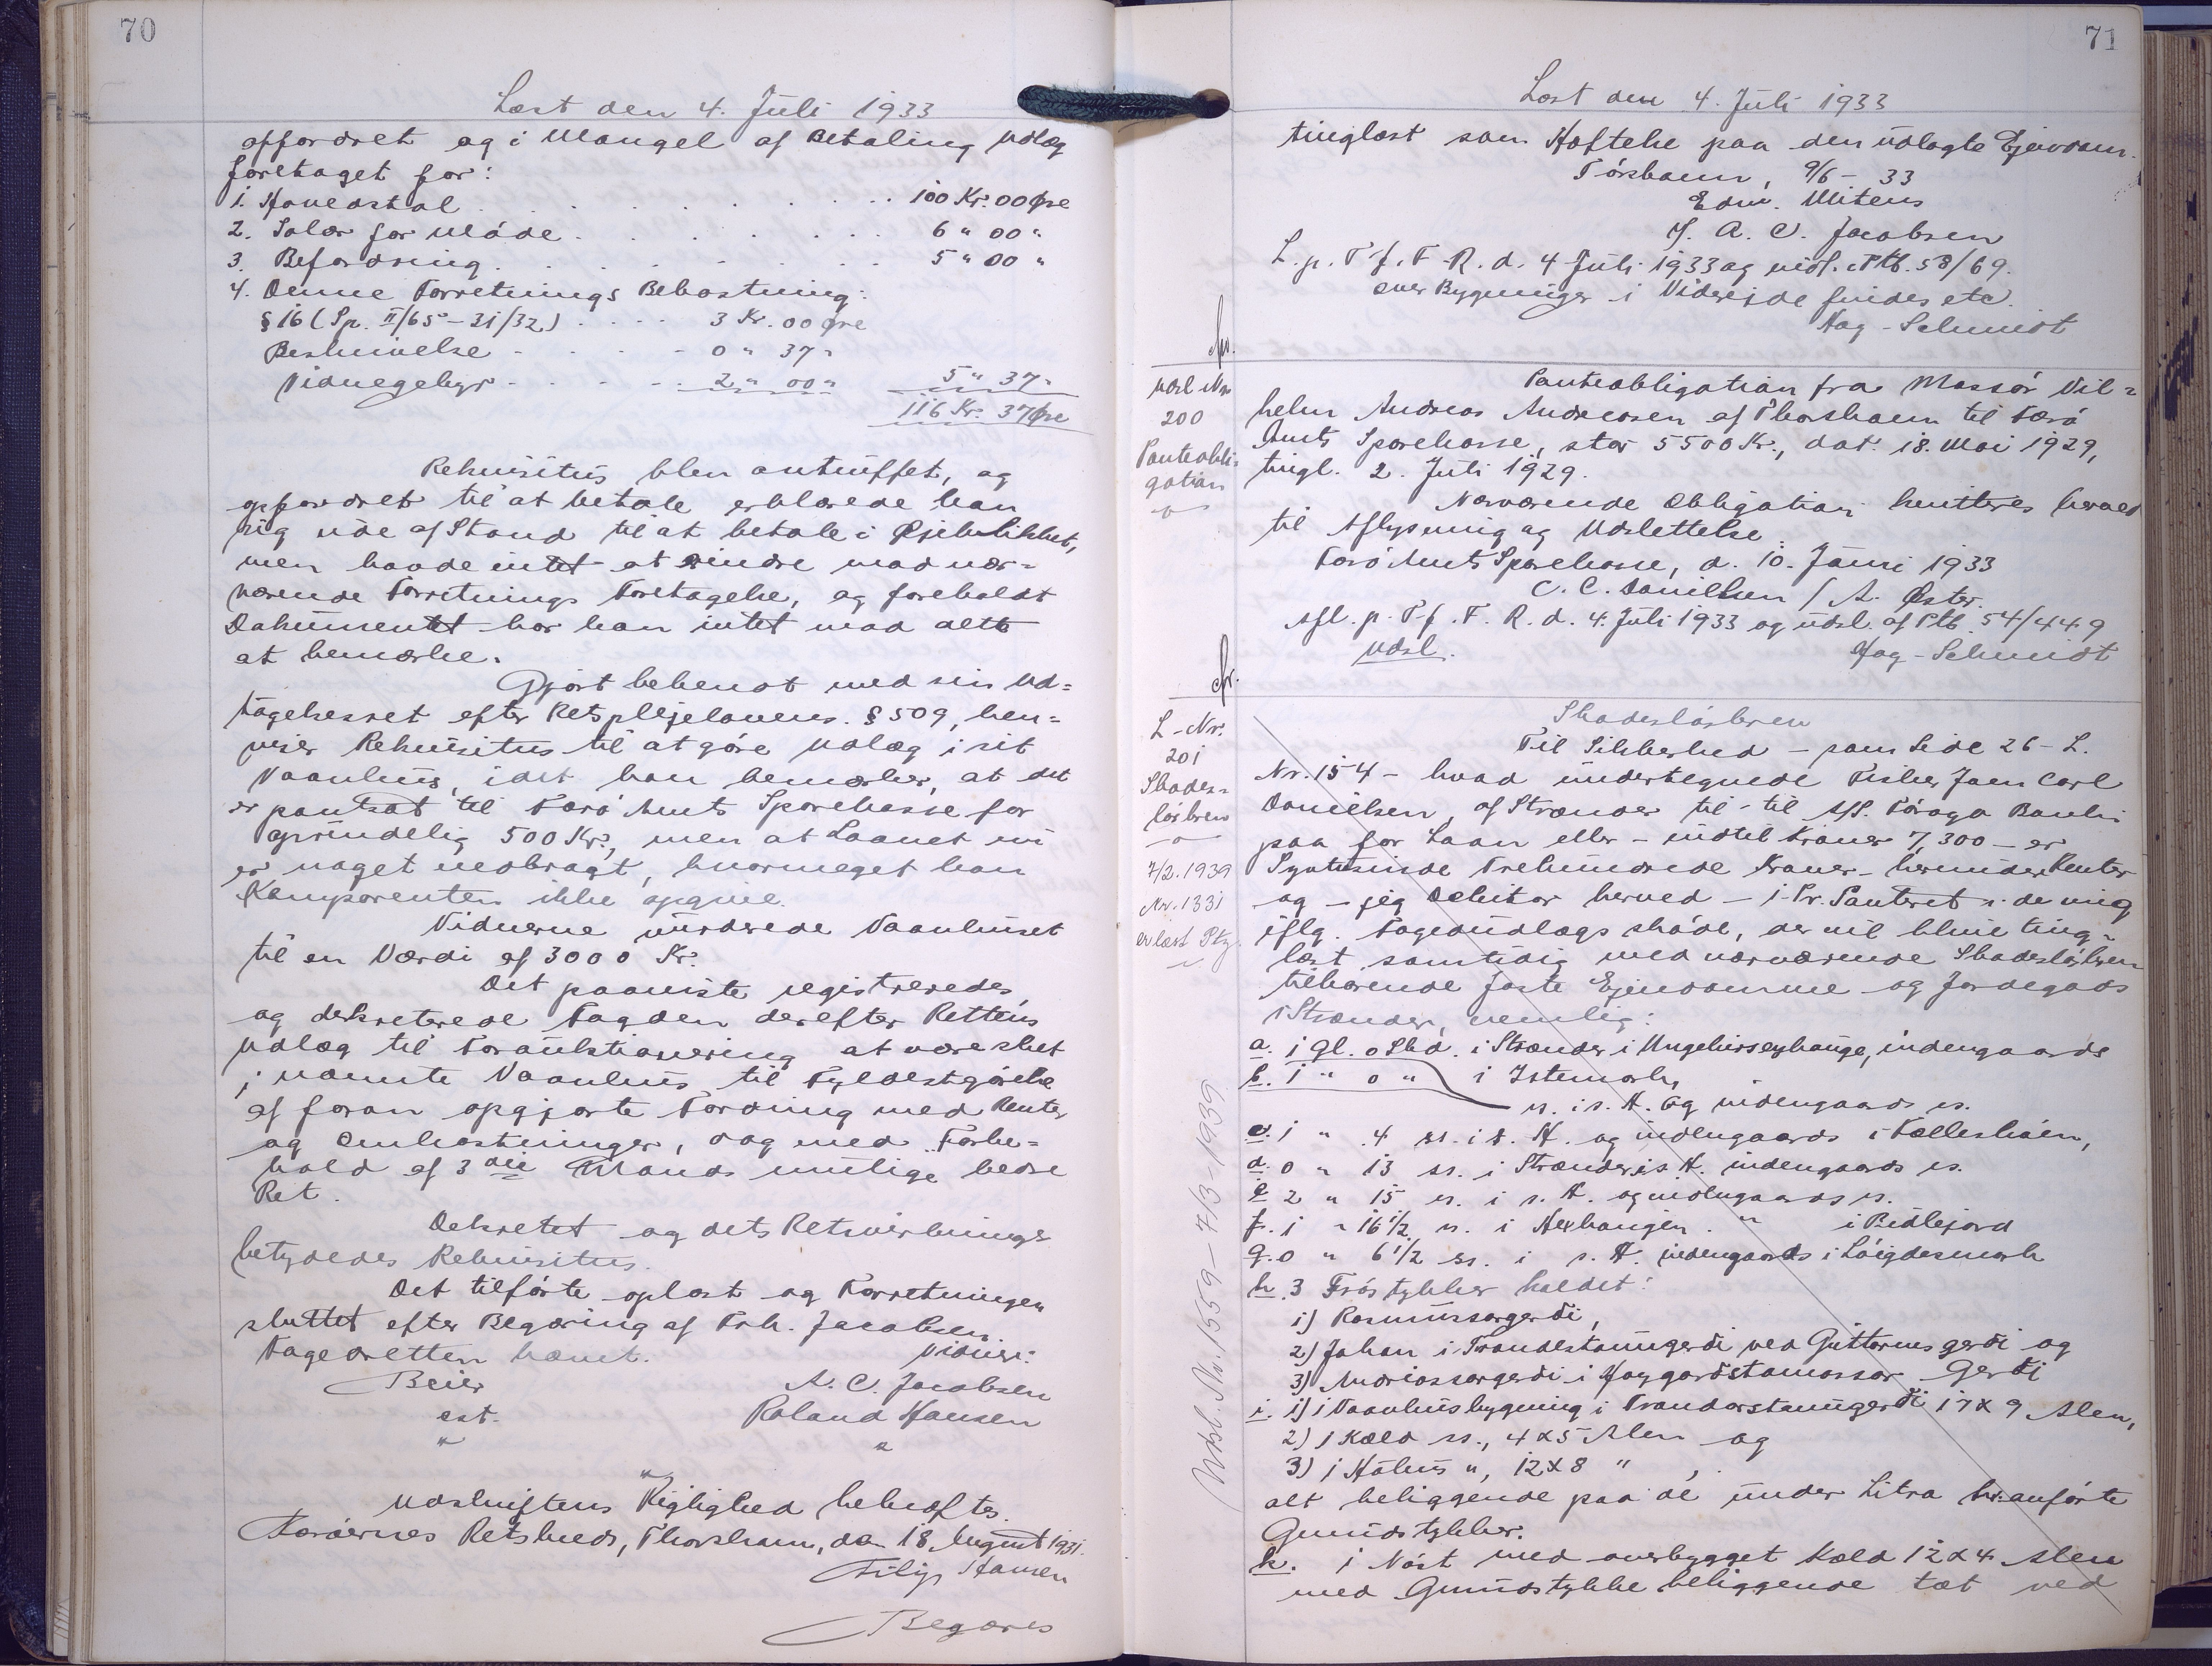 70
Læst den 4. Juli 1933
opfordret og i Mangel af Betaling Udlæg
foretaget for:
1. Hovedstol . . . . . . . . . 100 Kr. 00 Øre
2. Salær for Møde . . . . . . . 6 " 00 "
3. Befordring . . . . . . . . 5 " 00 "
4. Denne Forretnings Bekostning:
§ 16 (Sp. II/65 - 31/32) . . . . 3 Kr. 00 Øre
Beskrivelse - . . . - 0 " 37 "
Vidnegebyr - . . . - 2 " 00 " 5 " 37 "
116 Kr. 37 Øre
Rekvisitus blev antruffet, og
opfordret til at betale erklærede han
sig ude af Stand til at betale i Øjeblikket,
men havde intet at erindre mod nær=
værende Forretnings Foretagelse, og foreholdt
Dokumentet har han intet mod dette
at bemærke.
Gjort bekendt med sin Ud=
tagelsesret efter Retsplejelovens § 509, hen=
viser Rekvisitus til at gøre Udlæg i sit
Vaanhus, idet han bemærker, at det
er pantsat til Færø Amts Sparekasse for
oprindelig 500 Kr., men at Laanet nu
er noget nedbragt, hvormeget kan
Komparenten ikke opgive.
Vidnerne vurderede Vaanhuset
til en Værdi af 3000 Kr.
Det paaviste registreredes,
og dekreterede Fogden derefter Rettens
Udlæg til Forauktionering at være sket
i nævnte Vaanhus til Fyldestgørelse
af foran opgjorte Fordring med Renter
og Omkostninger, dog med Forbe=
hold af 3die Mands mulige bedre
Ret.
Dekretet og dets Retsvirkninger
betydedes Rekvisitus.
Det tilførte oplæst og Forretningen
sluttet efter Begæring af Frk. Jacobsen.
Fogedretten hævet. Vidner:
Beier A. C. Jacobsen
cst. Roland Hansen
" "
"
Udskriftens Rigtighed bekræftes.
Færøernes Retskreds, Thorshavn, den 18. August 1931.
Filip Hansen
Begæres
71
Læst den 4. Juli 1933
tinglæst som Hæftelse paa den udlagte Ejendom.
Tórshavn, 9/6 - 33
Edw. Mitens
/ A. C. Jacobsen
L. p. T. f. F. R. d. 4 Juli 1933 og indf. i Ptb. 58/69.
over Bygninger i Viderejde findes etc.
Aag-Schmidt
Udsl Nr.
200
Panteobli=
gation
Panteobligation fra Massør Vil=
helm Andreas Andreasen af Thorshavn til Færø
Amts Sparekasse, stor 5500 Kr., dat. 18. Mai 1929,
tingl. 2. Juli 1929.
Nærværende Obligation kvitteres herved
til Aflysning og Udslettelse.
Færø Amts Sparekasse, d. 10. Juni 1933
C. C. Danielsen / A. Øster.
Afl. p. T. f. F. R. d. 4. Juli 1933 og udsl. af Ptb. 54/449
Udsl. Aag-Schmidt
L-Nr.
201
Skades=
løsbrev
7/2. 1939
Nr. 1331
er læst Ptg.
Udsl. Nr. 1559 - 7/3 - 1939
Skadesløsbrev
Til Sikkerhed - som Side 26 - L.
Nr. 154 - hvad undertegnede Fisker Joen Carl
Danielsen af Strænder til - til A/S. Føroya Banki
paa for Laan eller - indtil Kroner 7,300 - er
Syvtusinde Trehundrede Kroner - herunder Renter
og - jeg Debitor herved - 1. Pr. Panteret i de mig
iflg. Fogedudlægs skøde, der vil blive ting=
læst samtidig med nærværende Skadesløsbrev
tilhørende faste Ejendomme og Jordegods
i Strænder, nemlig:
a. 1 Gl. 0 Skd. i Strænder, i Ungekirseyhauge, indengaards
b. 1 " 0 " i Istemork,
ss. i s. H. og indengaards ss.
c. 1 " 4 ss. i s. H. og indengaards i Fælleskóen,
d. 0 " 13 ss. i Strænder, i s. H. indengaards ss.
e. 2 " 15 ss. i s. H. og indengaards ss.
f. 1 " 16 1/2 ss. i Hexhaugen. " i Bidlejord
g. 0 " 6 1/2 ss. i s. H. indengaards i Lóigdesmork
h. 3 Trøstykker kaldet:
1) Rasmussargerði,
2) Johan i Trøndestamgerði ved Guttormsgerði og
3) Andriassargerði i Høygarðstamossar Gerði
i. 1) 1 Vaanhusbygning i Trøndarstamgerði 17 x 9 Alen,
2) 1 Kæld ss., 4 x 5 Alen og
3) 1 Høhus ", 12 x 8 " ,
alt beliggende paa de under Litra h. anførte
Grundstykker.
k. 1 Nøst med overbygget Kæld 12 x 4 Alen
med Grundstykke beliggende tæt ved